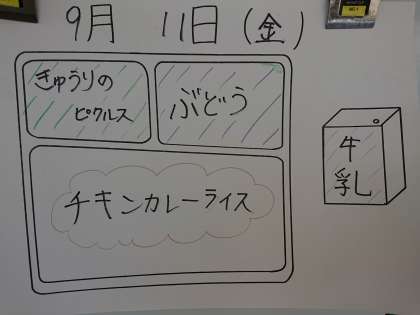 9月 11日 (金)
きゅうりの
ピクルス
ぶどう
チキンカレーライス
牛
乳